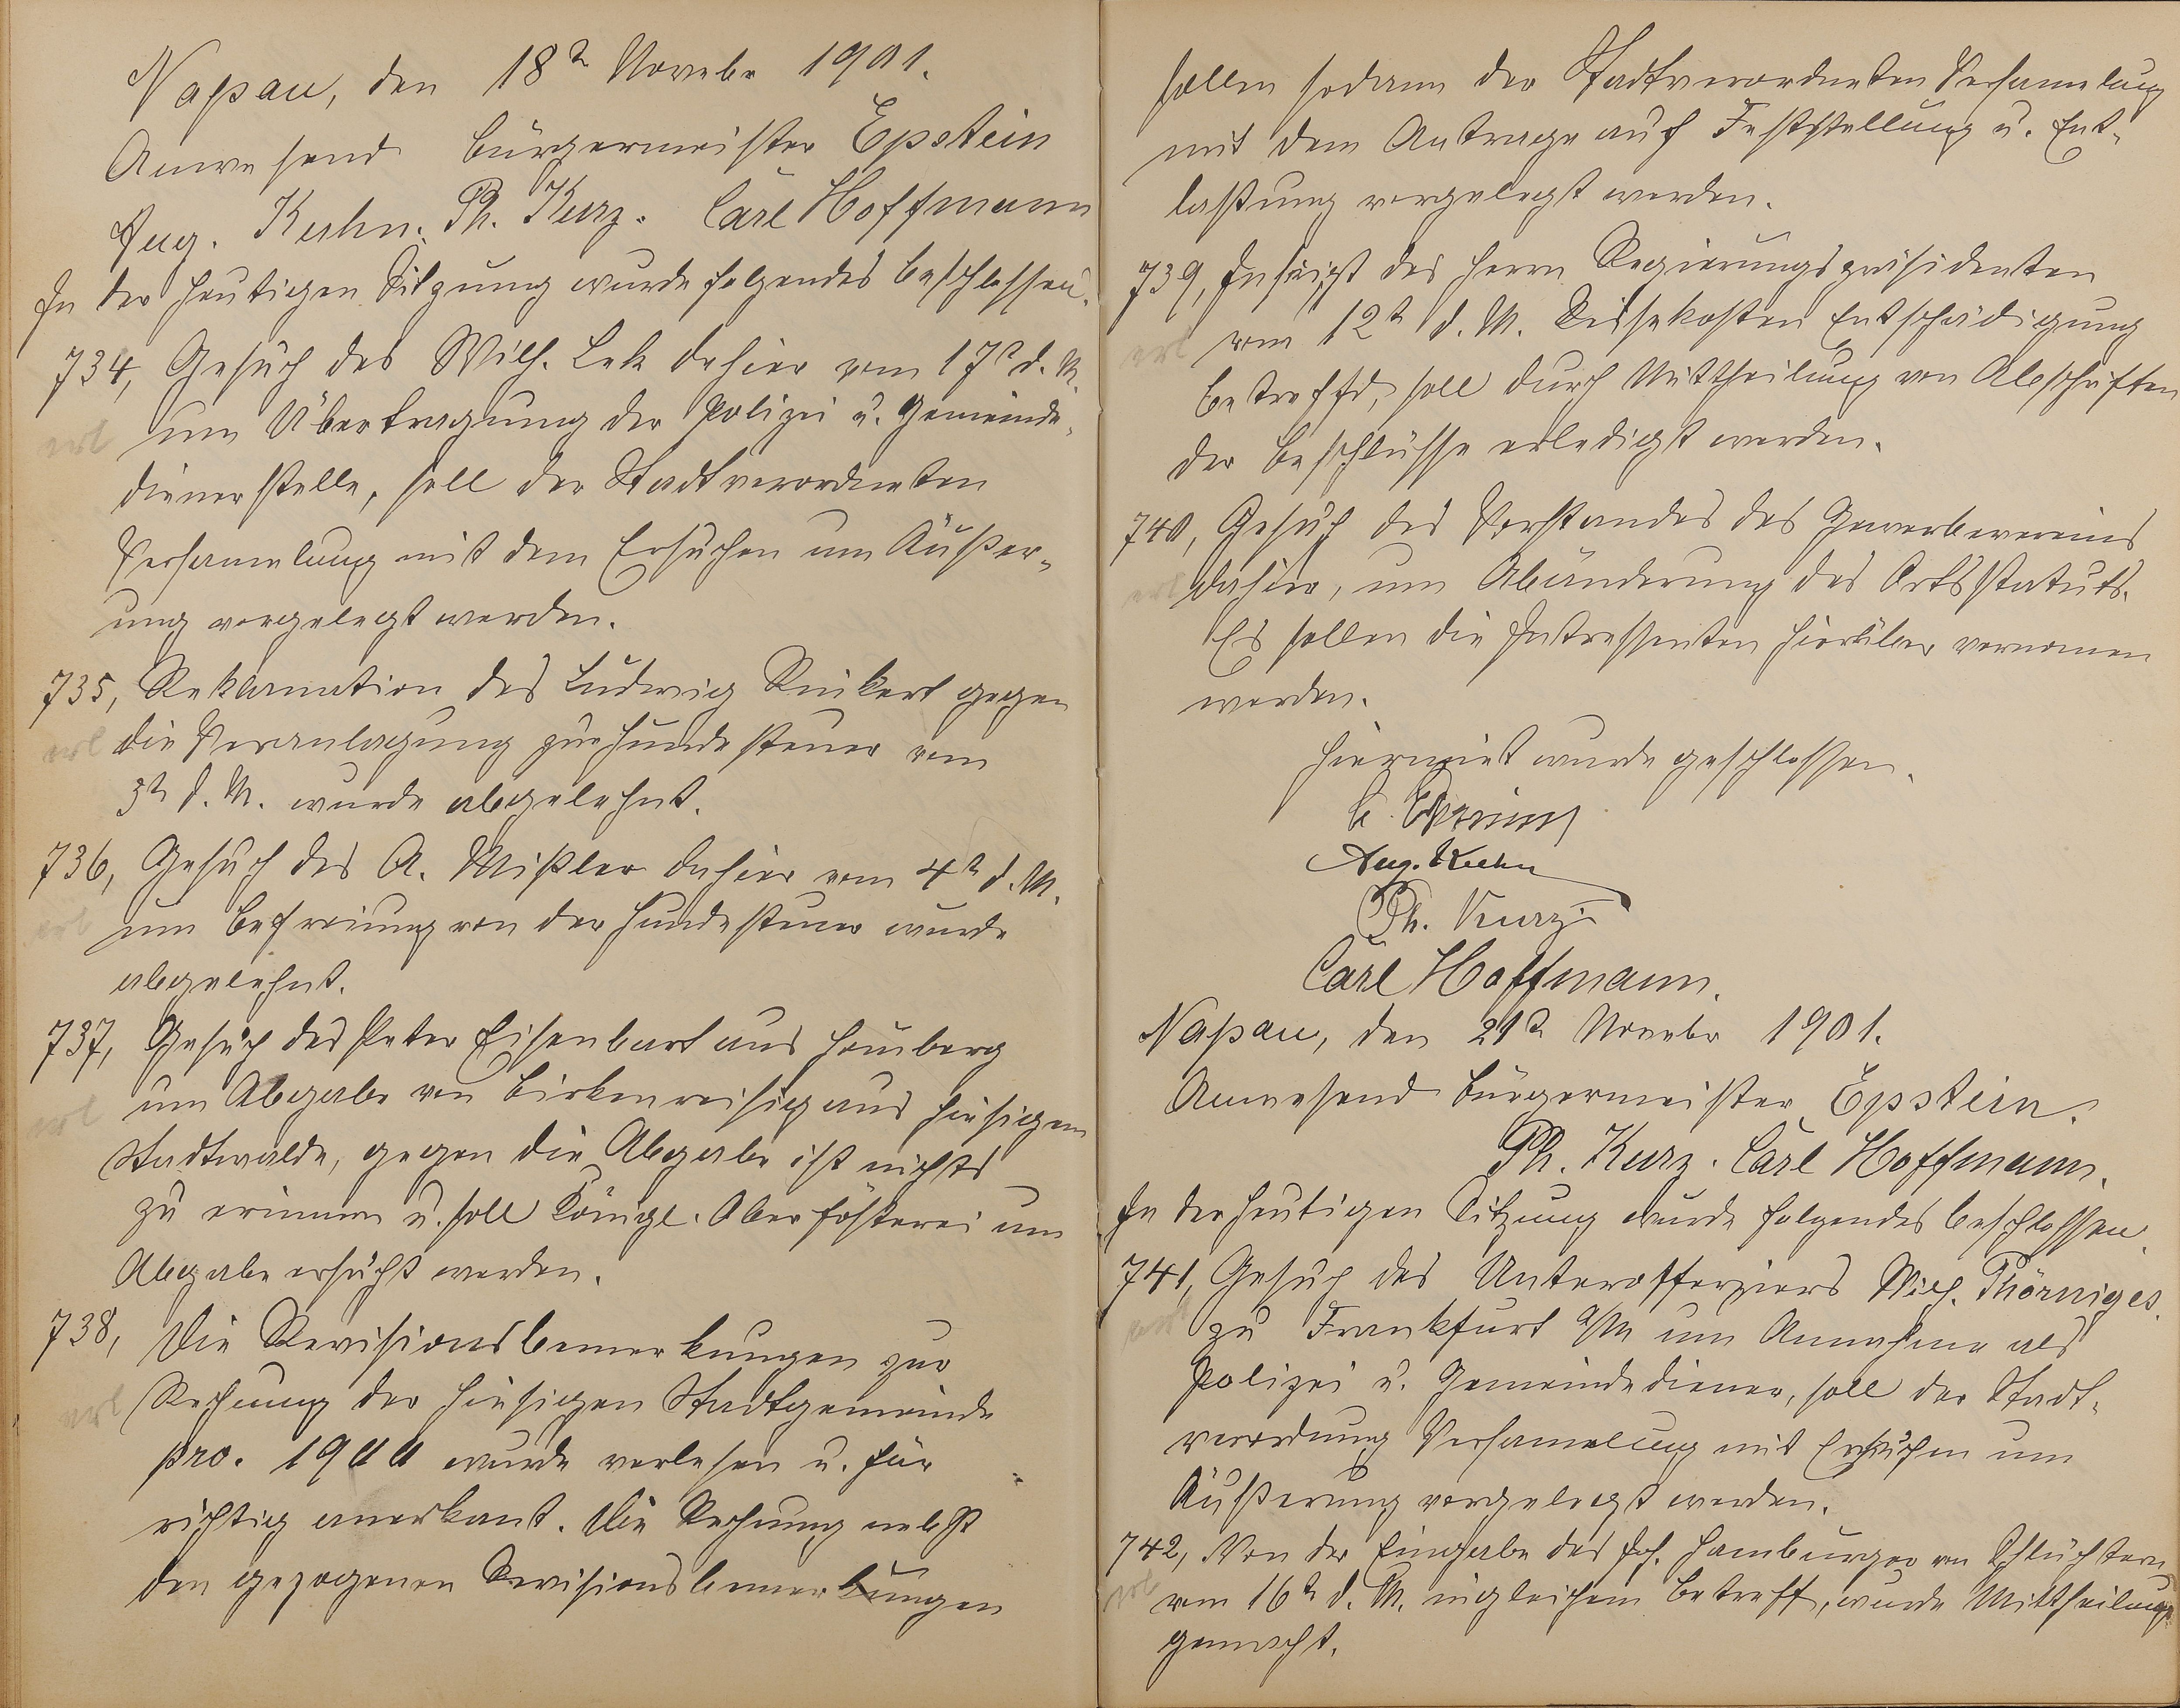 Naßau, den 18t Novebr 1901.
Anwesend Bürgermeister Epstein
Aug. Kuhn. Ph. Kurz. Carl Hoffmann
In der heutigen Sitzung wurde folgendes beschlossen.
734, Gesuch des Wilh. Lek dahier vom 17t d. M.
erl um Übertragung der Polizei u. Gemeinde-
dienerstelle, soll der Stadtverordneten
Versamelung mit dem Ersuchen um Äußer-
ung vorgelegt werden.
735, Reklamation des Ludwig Rückert gegen
erl die Veranlagung zur Hundesteuer vom
3t d. M. wurde abgelehnt.
736, Gesuch des A. Mißler dahier vom 4t d. M.
erl um Befreiung von der Hundesteuer wurde
abgelehnt.
737, Gesuch des Peter Eisenbart aus Hömberg
erl um Abgabe von Birkenreisig aus hiesigem
Stadtwalde, gegen die Abgabe ist nichts
zu erinnern u. soll Königl. Oberförsterei um
Abgabe ersucht werden.
738, Die Revisionsbemerkungen zur
erl Rechnung der hiesigen Stadtgemeinde
pro. 1900 wurde verlesen u. für
richtig anerkant. Die Rechnung nebst
den gezogenen Revisionsbemerkungen
sollen sodann der Stadtverordneten Versamelung
mit dem Antrage auf Feststellung u. Ent-
lastung vorgelegt werden.
739, Inschrift des Herrn Regierungspräsidenten
erl vom 12t d. M. Reisekosten Entschädigung
betreffd, soll durch Mittheilung von Abschriften
der Beschlüsse erledigt werden.
740, Gesuch des Vorstandes des Gewerbevereins
erl dahier, um Abänderung des Ortsstatuts.
Es sollen die Intressenten hierüber vernomen
werden.
Hiermit wurde geschlossen.
Epstein
Aug. Kuhn
Ph. Kurz
Carl Hoffmann.
Naßau, den 21t Novebr 1901.
Anwesend Bürgermeister Epstein.
Ph. Kurz. Carl Hoffmann.
In der heutigen Sitzung wurde folgendes beschlossen.
741, Gesuch des Unterofferziers Wilh. Thörniges
erl zu Frankfurt a/M um Annahme als
Polizei u. Gemeindediener, soll der Stadt-
verordnung Versamelung mit Ersuchen um
Äußerung vorgelegt werden.
742, Von der Eingabe des Jos. Hamburger von Schlüchtern
erl vom 16t d. M. in gleichem Betreff, wurde Mittheilung
gemacht.